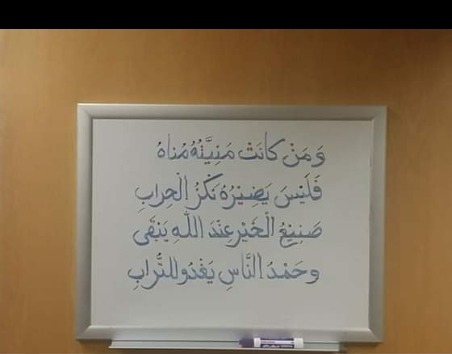 وَمَنْ كَانَتْ مَنِيَّتُهُ مُنَاهُ
فَلَيْسَ يَضِيْرُهُ نَكْزُ الْحِرَابِ
صَنِيْعُ الْخَيْرِ عِنْدَ اللهِ يَبْقَى
وحَمْدُ النَّاسِ يَغْدُو للتُّرابِ